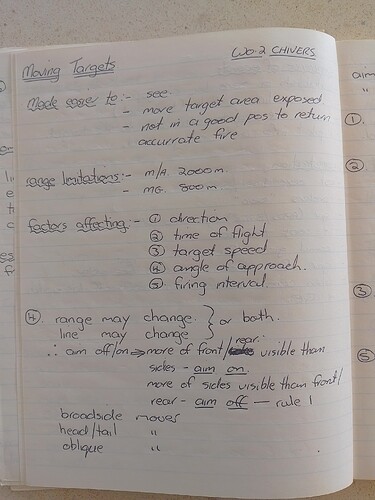 WO-2 CHIVERS
Moving Targets
Made easier to :- see.
- more target area exposed
- not in a good pos to return
accurrate fire
range limitations :- m/A. 2000m.
- MG. 800m.
factors affecting :- ① direction
② time of flight
③ target speed
④ angle of approach.
⑤ firing interval.
④ range may change } or both.
line may change
∴ aim off/on → more of front/rear visible than
sides - aim on.
more of sides visible than front/
rear - aim off — rule 1
broadside mover
head/tail "
oblique "
aim
"
①
②
③
⑤